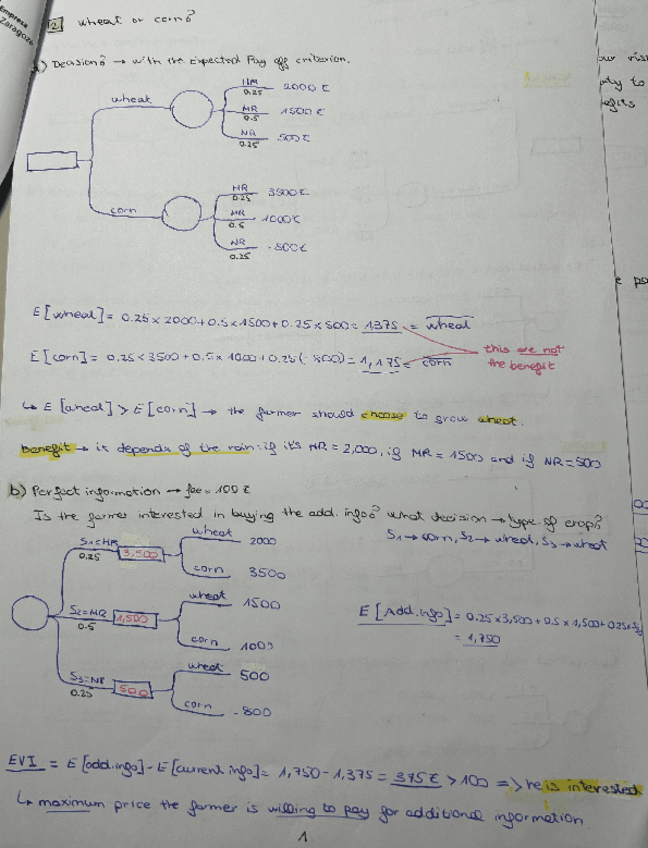 Empresa
Zaragoza
2. wheat or corn?
a) Decision? → with the expected Pay off criterion.
wheat
HR 0.25 2000 €
MR 0.5 1500 €
NR 0.25 500 €
corn
HR 0.25 3500 €
MR 0.5 1000 €
NR 0.25 -800 €
E [wheat] = 0.25 x 2000 + 0.5 x 1500 + 0.25 x 500 = 1375 = wheat
E [corn] = 0.25 x 3500 + 0.5 x 1000 + 0.25 (-800) = 1,175 = corn
this are not
the benefit
↳ E [wheat] > E [corn] → the farmer should choose to grow wheat.
benefit → it depends of the rain: if it's HR = 2,000, if MR = 1500 and if NR = 500
b) Perfect information → fee = 100 €
Is the farmer interested in buying the add. info? what decision → type of crop?
S1 → corn, S2 → wheat, S3 → wheat
S1 = HR 0.25 3,500
wheat 2000
corn 3500
S2 = MR 0.5 1,500
wheat 1500
corn 1000
S3 = NR 0.25 500
wheat 500
corn -800
E [Add. info] = 0.25 x 3,500 + 0.5 x 1,500 + 0.25 x
= 1,750
EVI = E [add. info] - E [current info] = 1,750 - 1,375 = 375 € > 100 => he is interested
↳ maximum price the farmer is willing to pay for additional information.
1